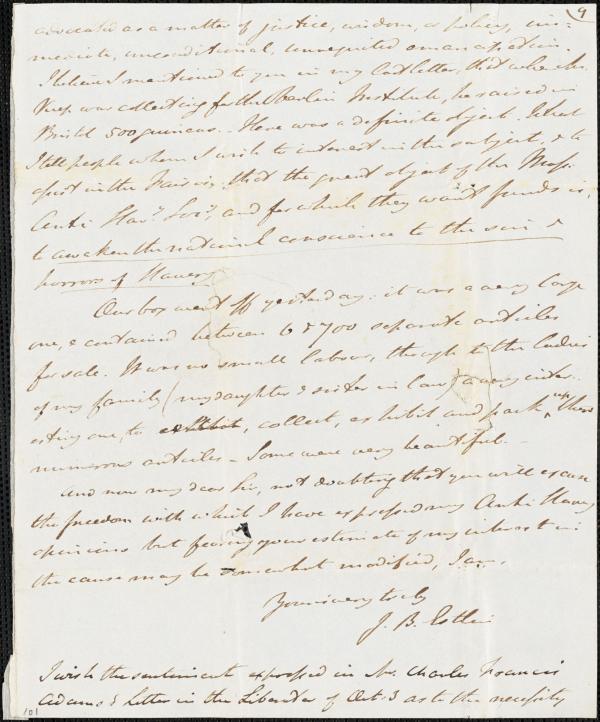 9
advocated as a matter of justice, wisdom, or policy, im-
mediate, unconditional, unrequited emancipation.
I believe I mentioned to you in my last letter, that when Mr.
Keep was collecting for the Oberlin Institute, he raised in
Bristol 500 guineas. - Here was a definite object. What
I tell people whom I wish to interest in the subject, & to
assist in the Fair is, that the great object of the Mass.
Anti Slavy. Socy. and for which they want funds is,
to awaken the national conscience to the sin &
horrors of Slavery.
Our box went off yesterday: it was a very large
one, & contained between 6 & 700 separate articles
for sale. It was no small labour, though to the Ladies
of my family (my daughter & sister in law) a very inter-
esting one, to collect, exhibit and pack up these
numerous articles - Some were very beautiful. -
And now my dear Sir, not doubting that you will excuse
the freedom with which I have expressed my Anti Slavery
opinions but fearing your estimate of my interest in
the cause may be somewhat modified, I am,
Yours very truly
J. B. Estlin
I wish the sentiment expressed in Mr. Charles Francis
Adams's letter in the Liberator of Oct. 3 as to the necessity
101